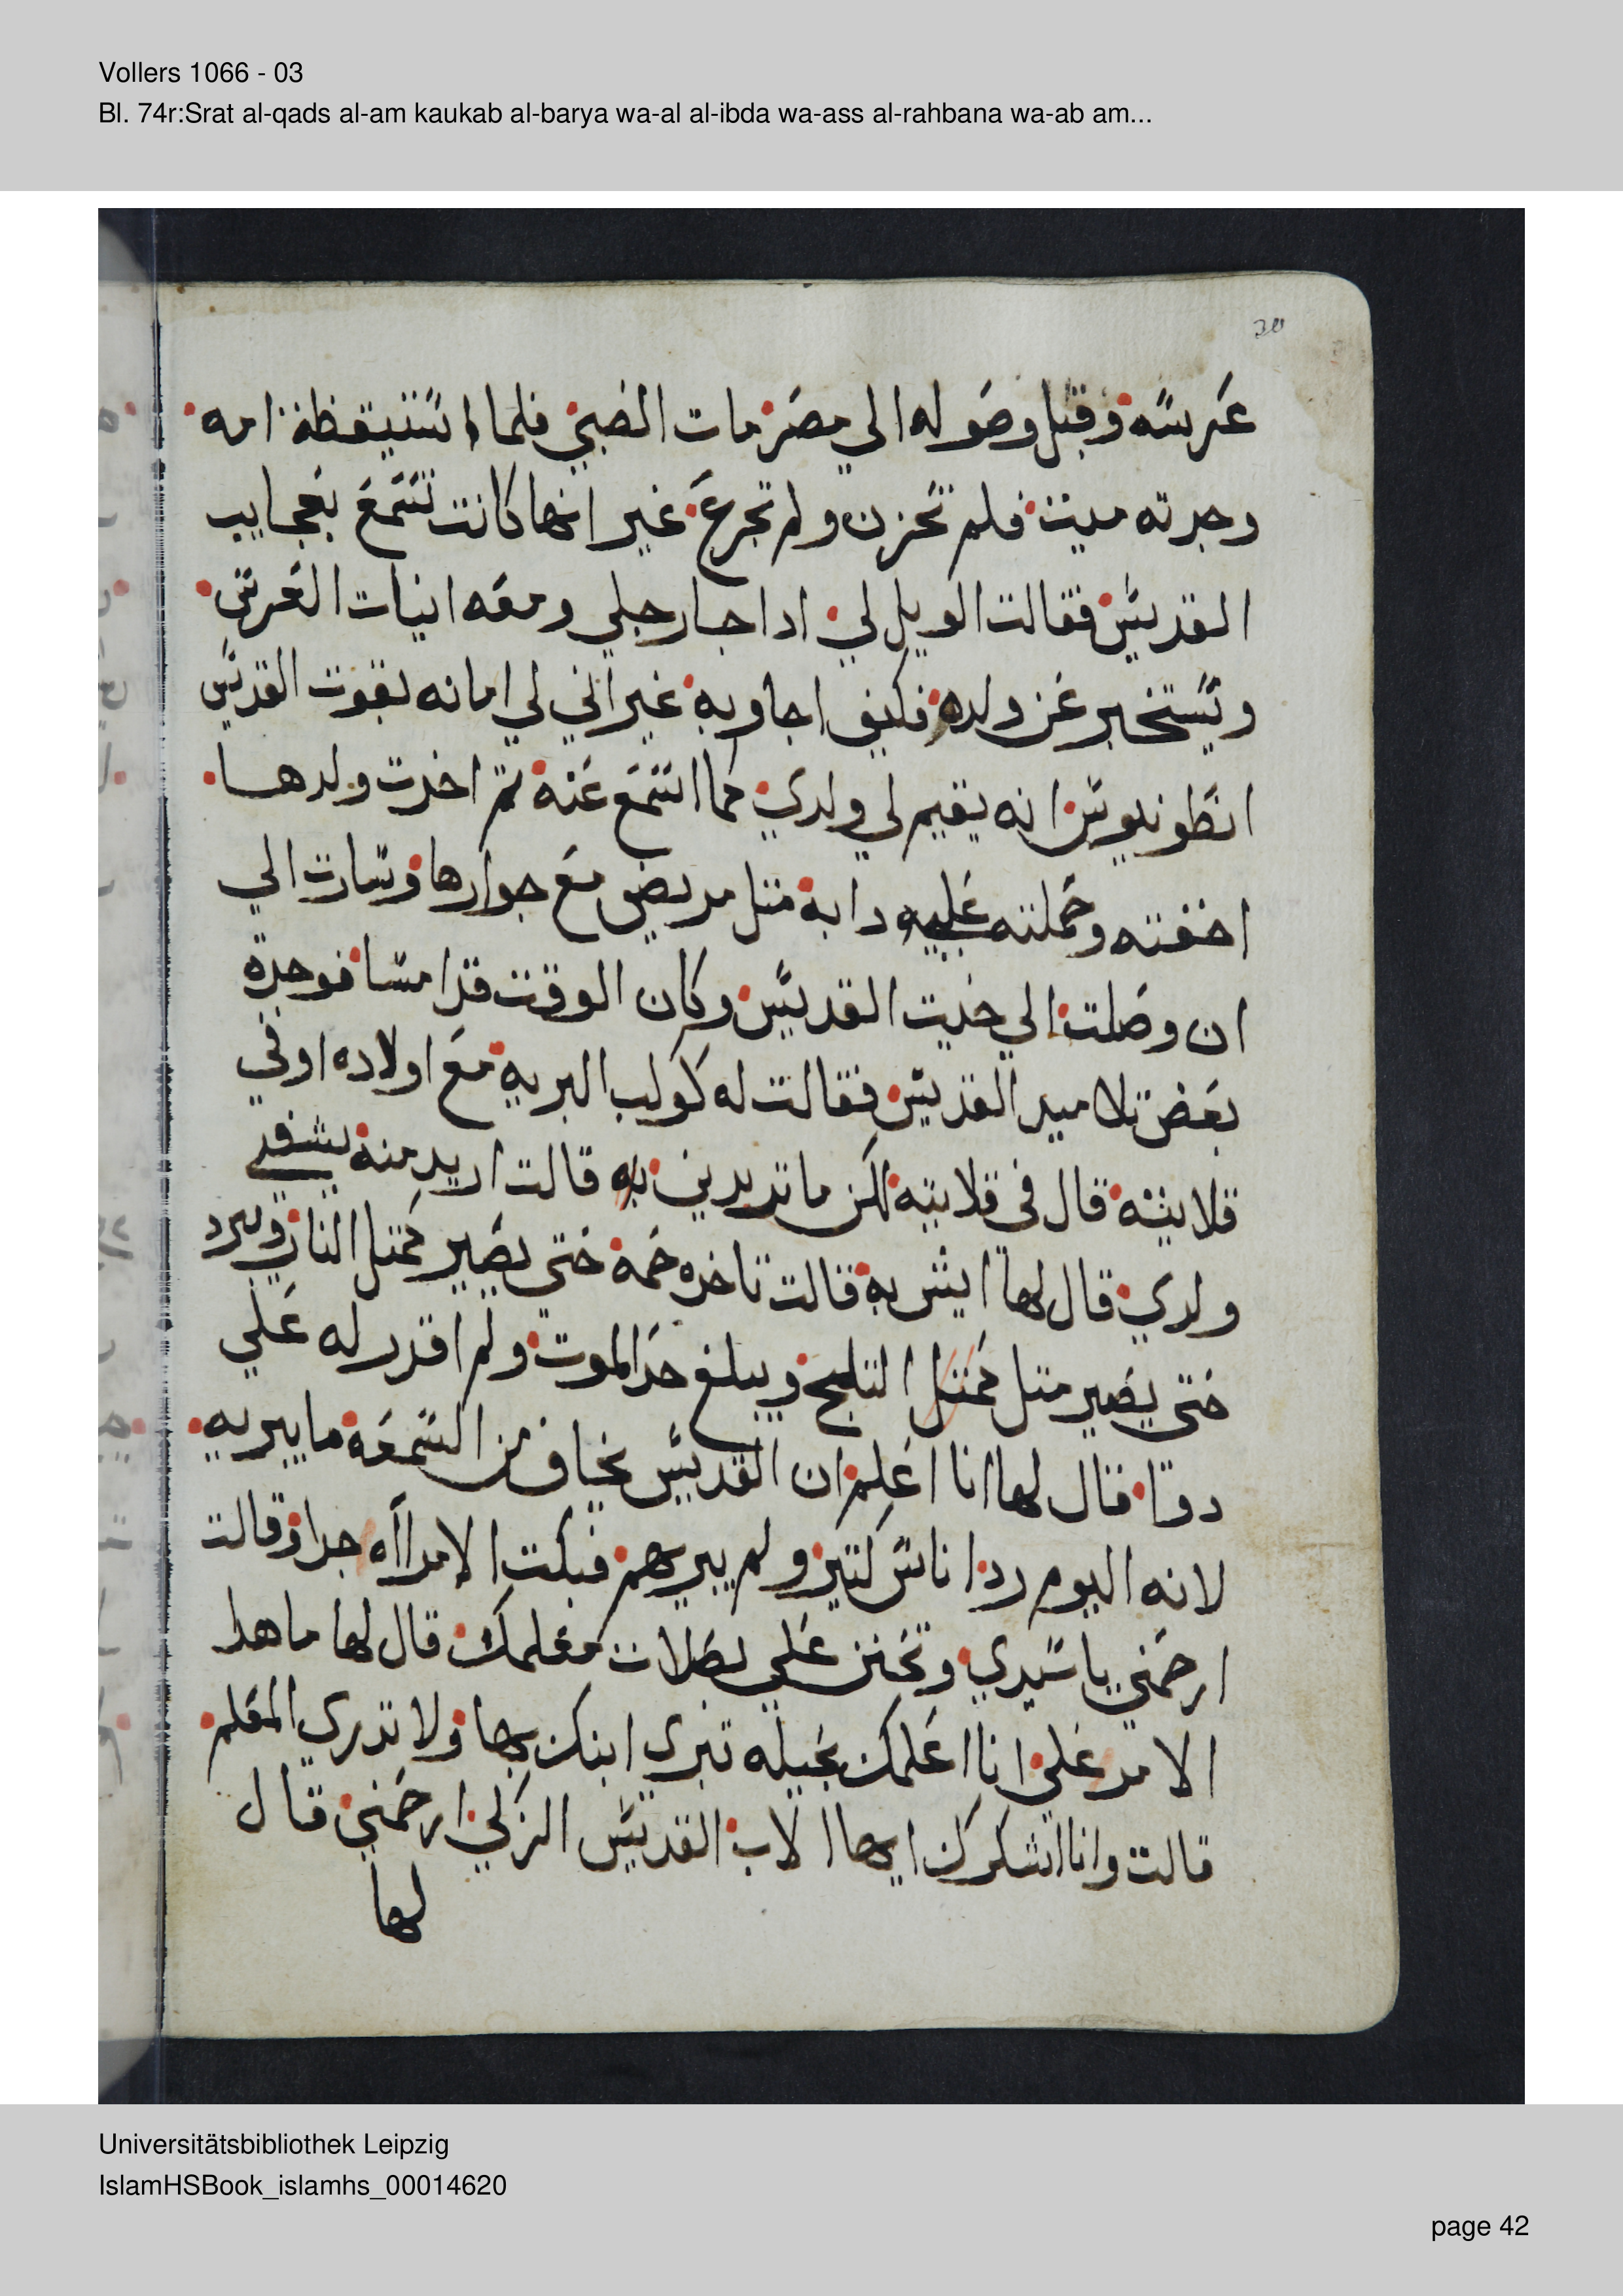 Vollers 1066 - 03
Bl. 74r:Srat al-qads al-am kaukab al-barya wa-al al-ibda wa-ass al-rahbana wa-ab am...
عرسه وقبل وصوله الي مصر مات الصبي فلما استيقظة امه
وجدته ميت فلم تحزن ولم تجزع غير انها كانت تسمع بعجايب
القديس فقالت الويل لي ادا جا رجلي ومعه انيات العرس
ويستخبر عن ولده فكيف اجاوبه غير اني لي امانه بقوت القديس
انطونيوس انه يقيم لي ولدي كما اسمع عنه تم اخدت ولدها
اخفته وحملته عليه دابه متل مريض مع جوارها وسارت الي
ان وصلت الي حيت القديس وكان الوقت قد امسا فوجدة
بعض تلاميد القديس فقالت له كوكب البريه مع اولاده او في
قلايته قال في قلايته لكن ما تريدين به قالت اريد منه يشفي
ولدي قال لها ايش به قالت تاخده حمه حتي يصير كمتل النار ويبرد
حتي يصير متل كمتل التلج ويبلغ حد الموت ولم اقدر له علي
دوا قال لها انا اعلم ان القديس يخاف من السمعه ما يبريه
لانه اليوم رد اناس كتير ولم يبريهم فبكت الامراه جدا وقالت
ارحمني يا سيدي وتحنن علي بصلات معلمك قال لها ما هدا
الامر علي انا اعلمك بحيله تبري ابنك بها ولا تدري المعلم
قالت وانا اشكرك ايها الاب القديس الزكي ارحمني قال
لها
Universitätsbibliothek Leipzig
IslamHSBook_islamhs_00014620
page 42